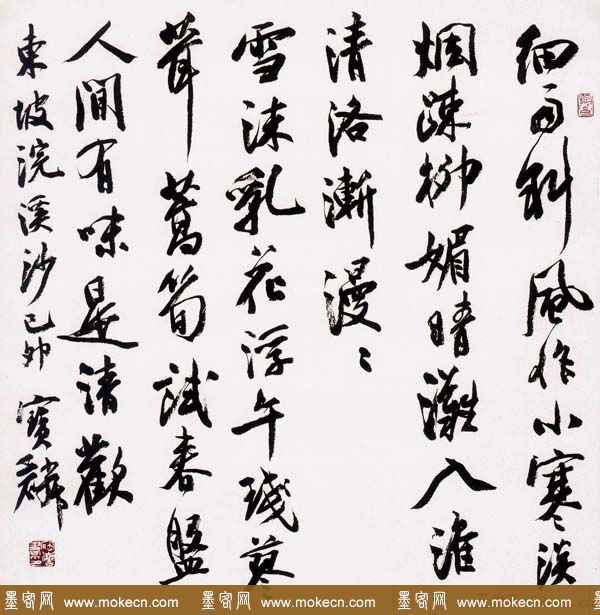 細雨斜風作小寒淡
烟疎柳媚晴灘入淮
清洛漸漫〻
雪沫乳花浮午琖蓼
茸蒿筍試春盤
人間有味是清歡
東坡浣溪沙己卯 寶麟
墨客网 www.mokecn.com 墨客网 www.mokecn.com 墨客网 www.mokecn.com